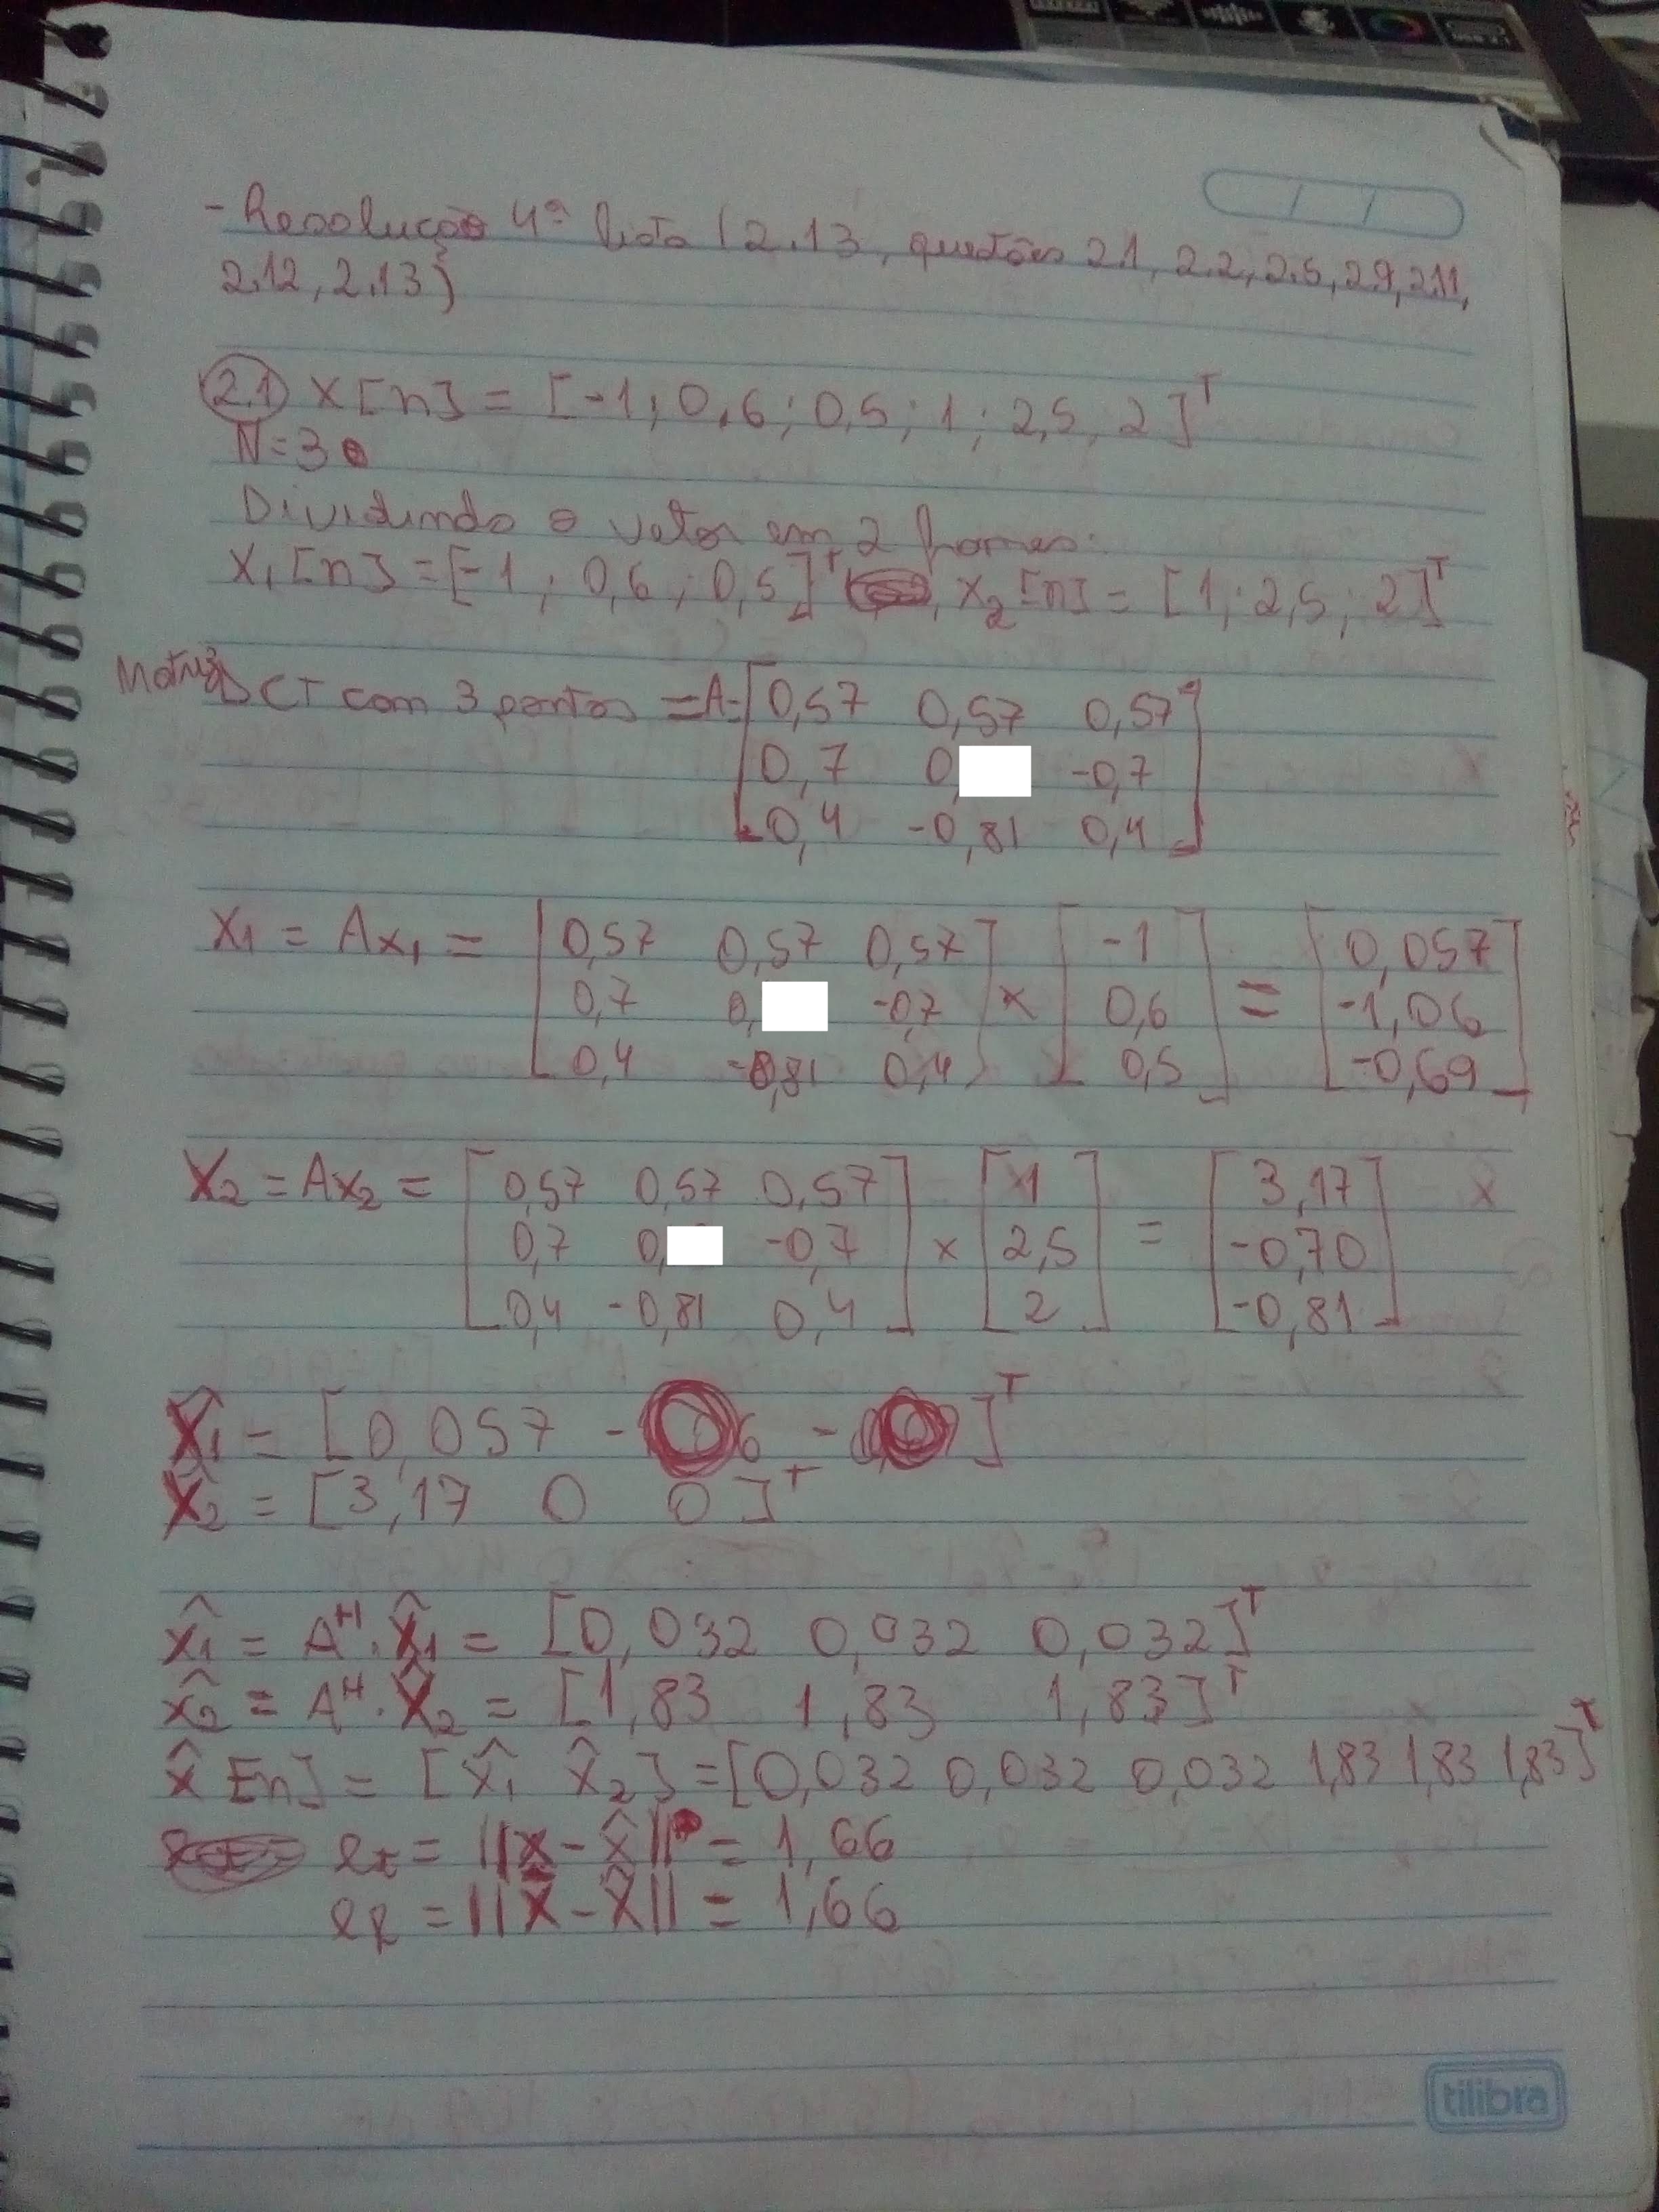 - Resolução 4ª lista (2.13, questões 2.1, 2.2, 2.5, 2.9, 2.11,
2.12, 2.13)
2.1 x[n] = [-1; 0,6; 0,5; 1; 2,5, 2]ᵀ
N=3
Dividindo o vetor em 2 frames:
x₁[n] = [-1; 0,6; 0,5]ᵀ, x₂[n] = [1; 2,5; 2]ᵀ
Matriz DCT com 3 pontos = A = [0,57 0,57 0,57
0,7 0, -0,7
0,4 -0,81 0,4]
X₁ = Ax₁ = [0,57 0,57 0,57] [-1] [0,057]
0,7 0, -0,7 x 0,6 = -1,06
0,4 -0,81 0,4 0,5 -0,69
X₂ = Ax₂ = [0,57 0,57 0,57] [1] [3,17]
0,7 0, -0,7 x 2,5 = -0,70
0,4 -0,81 0,4 2 -0,81
X̂₁ = [0,057 - - ]ᵀ
X̂₂ = [3,17 0 0]ᵀ
x̂₁ = Aᴴ.X̂₁ = [0,032 0,032 0,032]ᵀ
x̂₂ = Aᴴ.X̂₂ = [1,83 1,83 1,83]ᵀ
x̂[n] = [x̂₁ x̂₂] = [0,032 0,032 0,032 1,83 1,83 1,83]ᵀ
= ||x - x̂|| = 1,66
= ||X - X̂|| = 1,66
tilibra